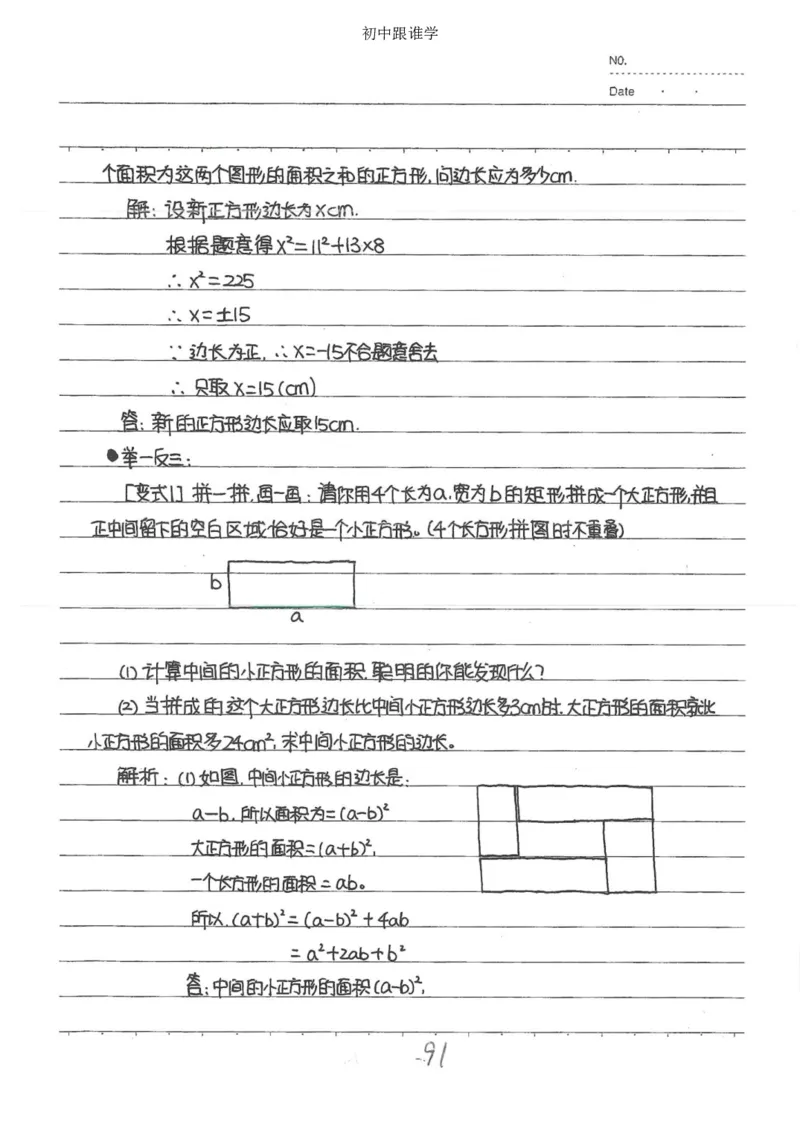 初中跟谁学
NO.
Date
个面积为这两个图形的面积之和的正方形,问边长应为多少cm.
解:设新正方形边长为xcm.
根据题意得x²=11²+13×8
∴ x²=225
∴ x=±15
∵ 边长为正, ∴x=-15不合题意舍去
∴ 只取x=15(cm)
答:新的正方形边长应取15cm.
●举一反三:
[变式1] 拼一拼,画一画:请你用4个长为a,宽为b的矩形拼成一个大正方形,并且
正中间留下的空白区域恰好是一个小正方形。(4个长方形拼图时不重叠)
b
a
(1)计算中间的小正方形的面积,聪明的你能发现什么?
(2)当拼成的这个大正方形边长比中间小正方形边长多3cm时,大正方形的面积就比
小正方形的面积多24cm²,求中间小正方形的边长。
解析:(1)如图,中间小正方形的边长是:
a-b,所以面积为=(a-b)²
大正方形的面积=(a+b)²,
一个长方形的面积=ab。
所以,(a+b)²=(a-b)²+4ab
=a²+2ab+b²
答:中间的小正方形的面积(a-b)²,
-91